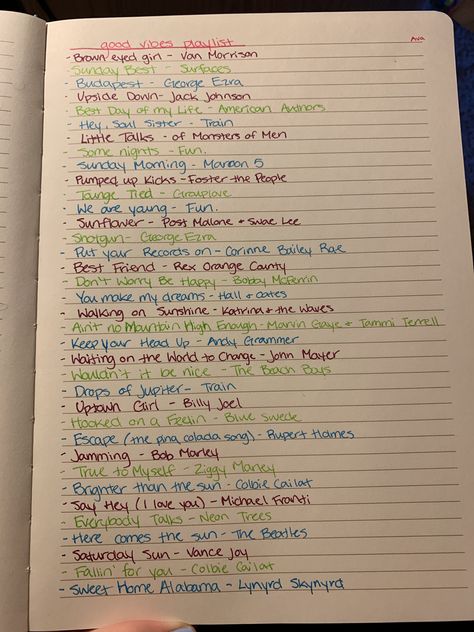 good vibes playlist
Ava
- Brown eyed girl - Van Morrison
- Sunday Best - Surfaces
- Budapest - George Ezra
- Upside Down - Jack Johnson
- Best Day of my Life - American Authors
- Hey, Soul Sister - Train
- Little Talks - of Monsters of Men
- Some nights - Fun.
- Sunday Morning - Maroon 5
- Pumped up Kicks - Foster the People
- Tounge Tied - Grouplove
- We are young - Fun.
- Sunflower - Post Malone + Swae Lee
- Shotgun - George Ezra
- Put your Records on - Corinne Bailey Rae
- Best Friend - Rex Orange County
- Don't Worry Be Happy - Bobby McFerrin
- You make my dreams - Hall & Oates
- Walking on Sunshine - Katrina + the Waves
- Ain't no Mountain High Enough - Marvin Gaye + Tammi Terrell
- Keep your Head Up - Andy Grammer
- Waiting on the World to Change - John Mayer
- Wouldn't it be nice - The Beach Boys
- Drops of Jupiter - Train
- Uptown Girl - Billy Joel
- Hooked on a Feelin - Blue Swede
- Escape (the pina colada song) - Rupert Holmes
- Jamming - Bob Marley
- True to Myself - Ziggy Marley
- Brighter than the sun - Colbie Cailat
- Say Hey (I love you) - Michael Franti
- Everybody Talks - Neon Trees
- Here comes the sun - The Beatles
- Saturday Sun - Vance Joy
- Fallin' for you - Colbie Cailat
- Sweet Home Alabama - Lynyrd Skynyrd